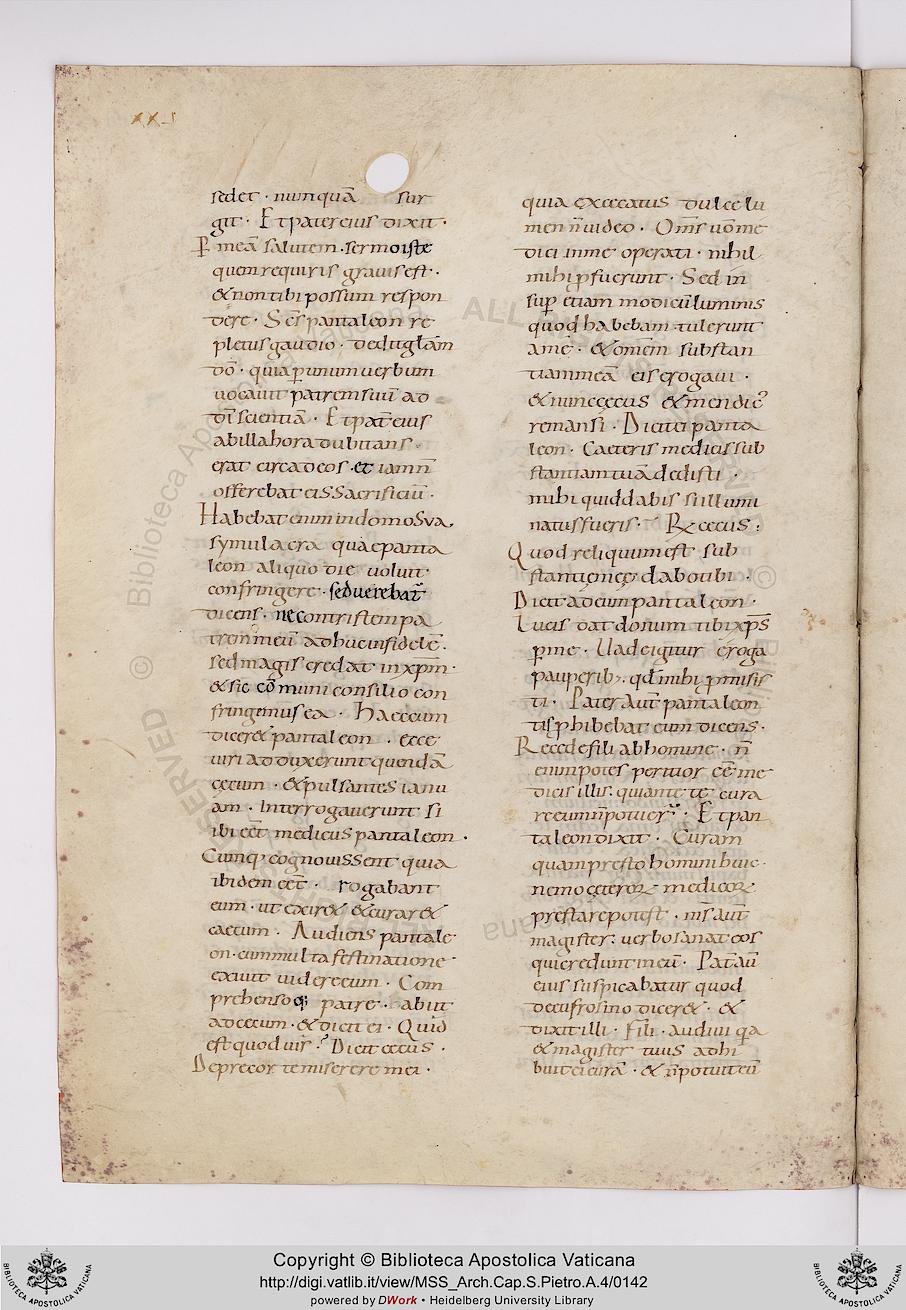 XXI
sedet · nunquā sur
git · Et pater eius dixit ·
P̄ meā salutem · sermo iste
quem requiris gravis est ·
& non tibi possum respon
dere · Sc̄s pantaleon re
pletus gaudio · dedit glām
dō · quia p̄ unum verbum
vocavit patrem suū ad
dī scientiā · Et pat̄ eius
ab illa hora dubitans ·
erat circa deos · et iam n̄
offerebat eis sacrificiū ·
Habebat enim in domo sva,
symulacra quae panta
leon aliquo die voluit
confringere · sed verebat̄
dicens · ne contristem pa
trem meū adhuc infidelē ·
sed magis credat in xp̄m ·
& sic cōmuni consilio con
fringemus ea · Haec cum
dicer& pantaleon · ecce
viri adduxerunt quendā
cecum · & pulsantes ianu
am · Interrogaverunt si
ibi eēt medicus pantaleon ·
Cumq; cognovissent quia
ibidem eēt · rogabant
eum · ut exir& & curar&
caecum · Audiens pantale
on · cum multa festinatione
exivit videre eum · Com
prehensoq; patre · abiit
ad cecum · & dicit ei · Quid
est quod vis ? Dicit cecus ·
Deprecor te miserere mei ·
quia excecatus dulce lu
men n̄ video · Om̄s
dici in me operati · nihil
mihi pfuerunt · Sed in
sup̄ etiam modicū luminis
quod habebam tulerunt
a me · & omēm substan
tiam meā eis erogavi ·
& nunc cecus & mendic᾽
remansi · Dicit ei panta
leon · Caeteris medicis sub
stantiam tuā dedisti ·
mihi quid dabis si illumi
natus fueris · R& cecus :
Quod reliquum est sub
stantie mee dabo tibi ·
Dicit ad eum pantaleon ·
Lucis dat donum tibi xp̄s
p̄ me · Vade igitur eroga
pauperib; · qd̄ mihi pmisis
ti · Pater aut̄ pantaleon
tis phibebat eum dicens ·
Recede fili ab homine · n̄
enim potes peritior eē me
dicis illis · qui ante te cura
re eum n̄ potuer̄ · Et pan
taleon dixit · Curam
quam presto homini huic ·
nemo ceteroꝝ medicoꝝ
prestare potest · n̄si aut̄
magister: verbo sanat eos
qui credunt in eū · Pat̄ aū
eius suspicabatur quod
de eufrosino dicer& · &
dixit illi · Fili · audivi qa
& magister tuus adhi
buit ei curā · & n̄ potuit eū
Copyright © Biblioteca Apostolica Vaticana
http://digi.vatlib.it/view/MSS_Arch.Cap.S.Pietro.A.4/0142
powered by DWork • Heidelberg University Library